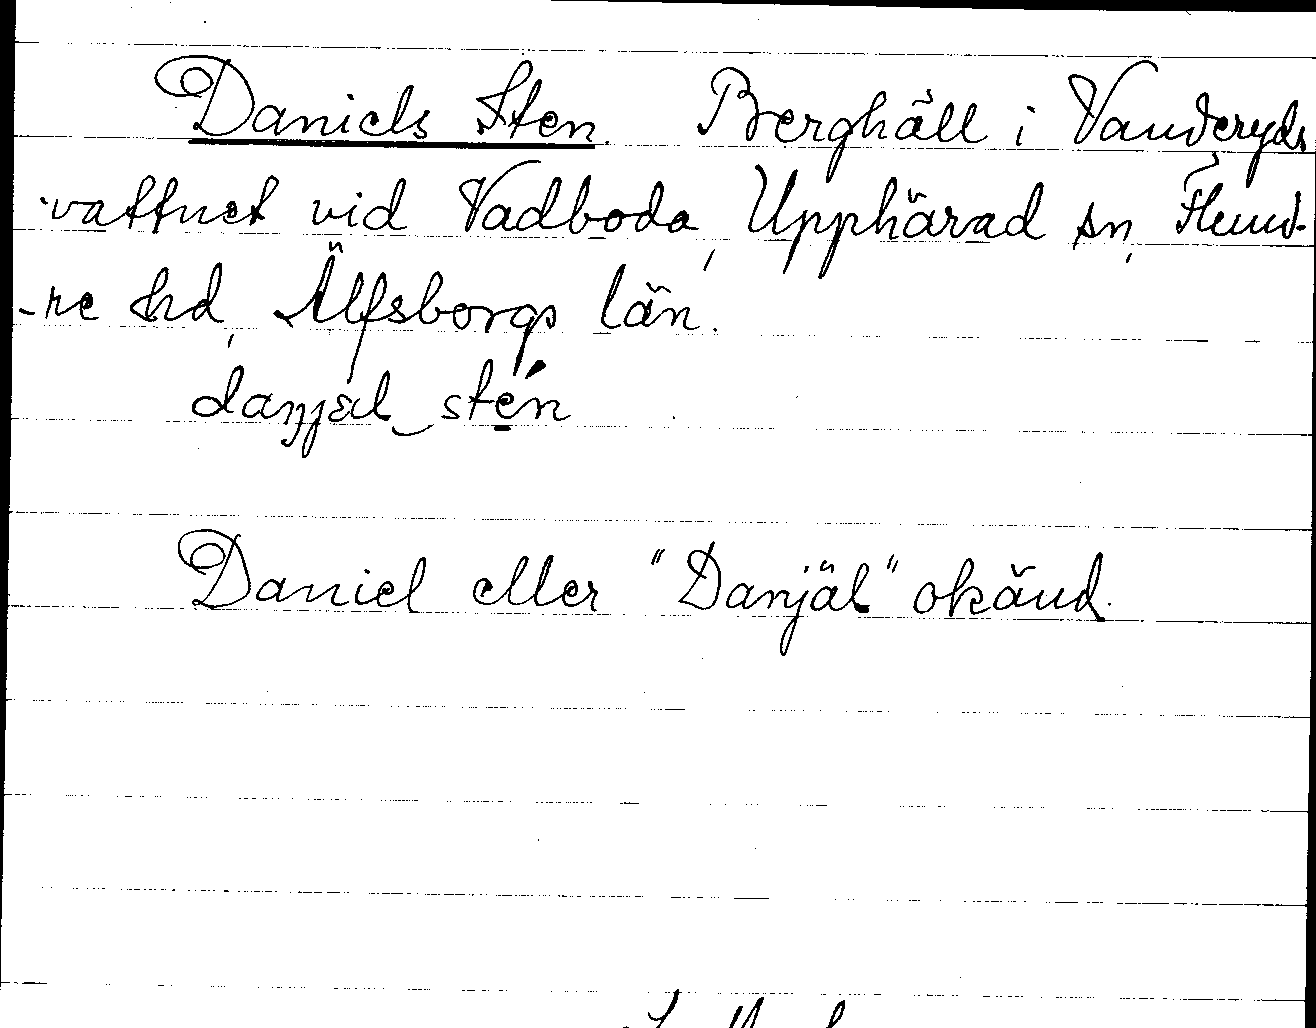 Daniels Sten. Berghäll i Vanderyds
-vattnet vid Vadboda, Upphärad sn, Flund-
-re hd, Älfsborgs län.
daŋjäl_stén
Daniel eller "Danjäl" okänd.